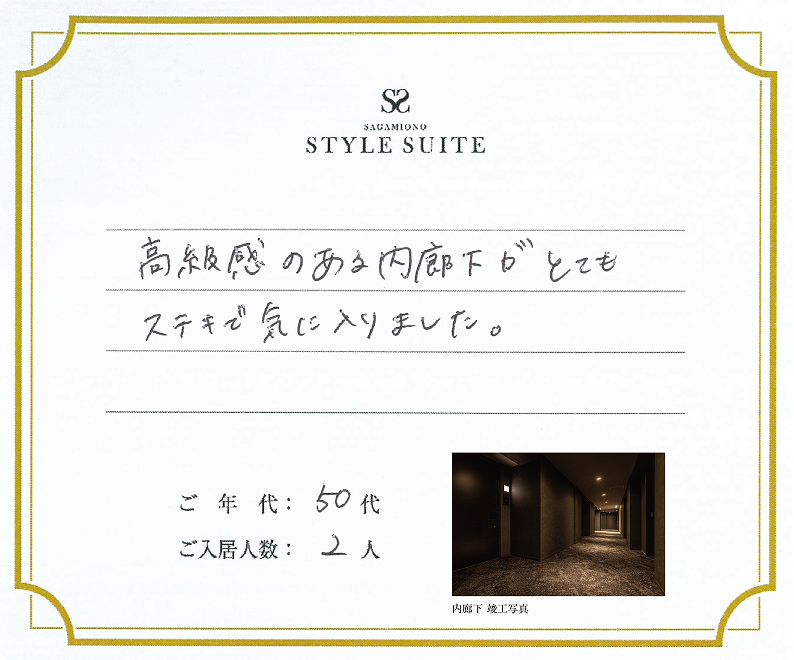 SS
SAGAMIONO
STYLE SUITE
高級感のある内廊下がとても
ステキで気に入りました。
ご年代： 50 代
ご入居人数： 2 人
内廊下 竣工写真